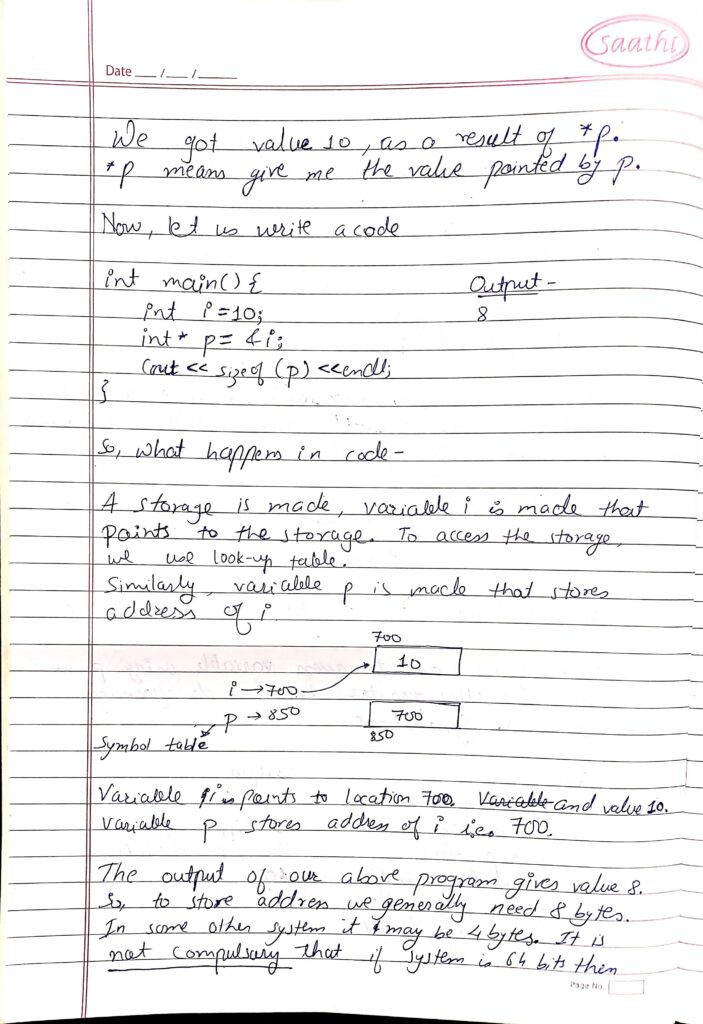 Saathi
Date __/__/____
We got value 10, as a result of *p.
*p means give me the value pointed by p.
Now, let us write a code
int main() {
Output -
int i = 10;
8
int* p = &i;
cout << sizeof (p) << endl;
}
So, what happens in code -
A storage is made, variable i is made that
points to the storage. To access the storage,
we use look-up table.
Similarly, variable p is made that stores
address of i
700
10
i → 700
p → 850
700
850
Symbol table
Variable i points to location 700 Variable and value 10.
Variable p stores address of i i.e. 700.
The output of our above program gives value 8.
So, to store address we generally need 8 bytes.
In some other system it may be 4 bytes. It is
not compulsary that if system is 64 bits then
Page No.